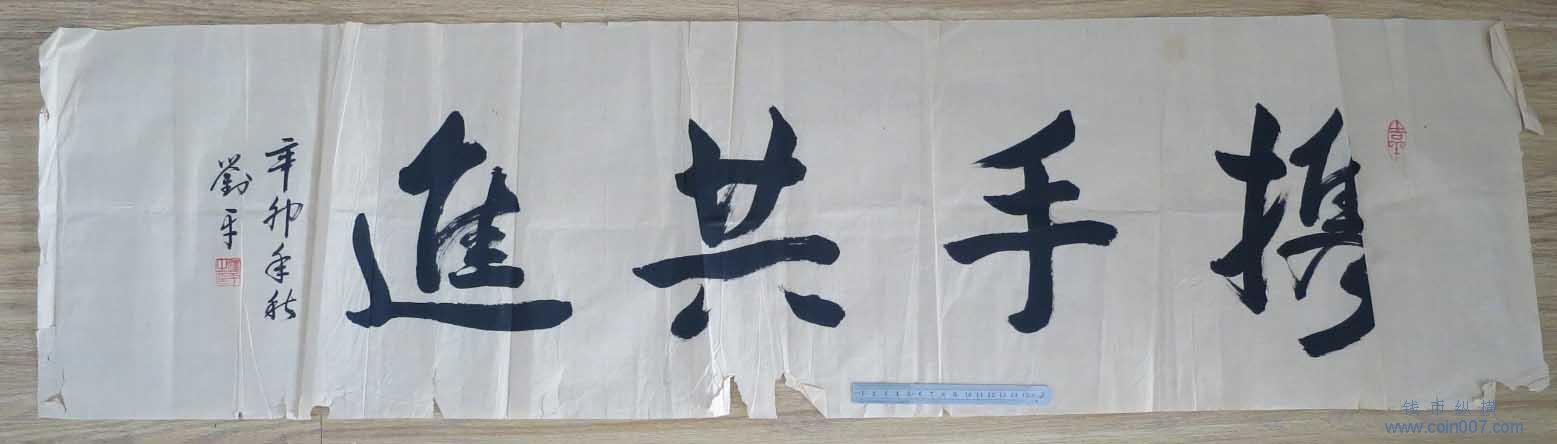 携手共進
辛卯年秋
劉平
钱币纵横
www.coin007.com